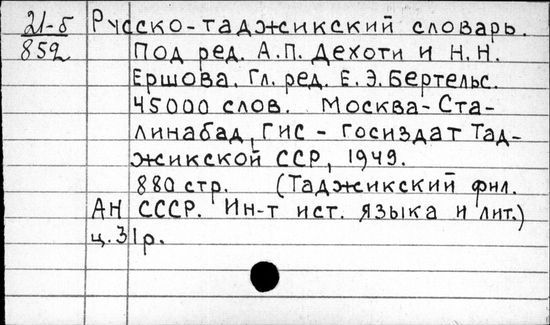 21-5 Русско-таджикский словарь.
852 Под ред. А.П. Дехоти и Н.Н.
Ершова. Гл. ред. Е.Э. Бертельс.
45000 слов. Москва-Ста-
линабад, ГИС - Госиздат Тад-
жикской ССР, 1949.
880 стр. (Таджикский фил.
АН СССР. Ин-т ист. языка и лит.)
ц. 31р.